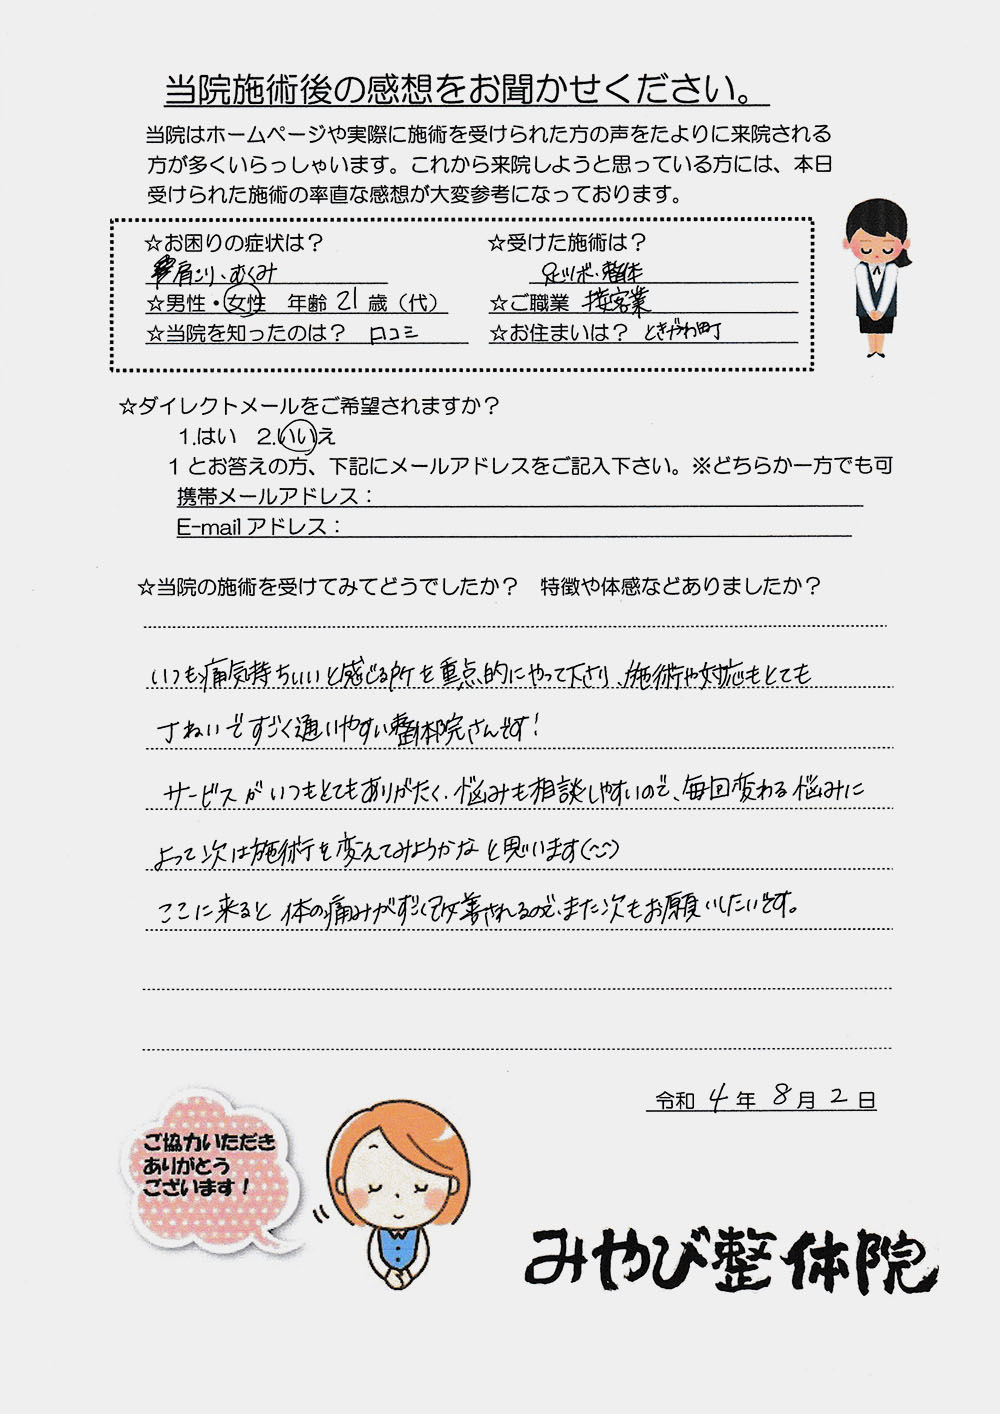 当院施術後の感想をお聞かせください。
当院はホームページや実際に施術を受けられた方の声をたよりに来院される
方が多くいらっしゃいます。これから来院しようと思っている方には、本日
受けられた施術の率直な感想が大変参考になっております。
☆お困りの症状は？ ☆受けた施術は？
肩こり、むくみ 足ツボ・整体
☆男性・女性 年齢 21 歳（代） ☆ご職業 接客業
☆当院を知ったのは？ 口コミ ☆お住まいは？ ときがわ町
☆ダイレクトメールをご希望されますか？
1.はい 2.いいえ
1とお答えの方、下記にメールアドレスをご記入下さい。※どちらか一方でも可
携帯メールアドレス：
E-mailアドレス：
☆当院の施術を受けてみてどうでしたか？ 特徴や体感などありましたか？
いつも痛気持ちいいと感じる所を重点的にやって下さり、施術や対応もとても
丁ねいですごく通いやすい整体院さんです！
サービスがいつもとてもありがたく、悩みも相談しやすいので、毎回変わる悩みに
よって次は施術を変えてみようかなと思います(^^)
ここに来ると体の痛みがすごく改善されるので、また次もお願いしたいです。
令和 4 年 8 月 2 日
ご協力いただき
ありがとう
ございます！
みやび整体院